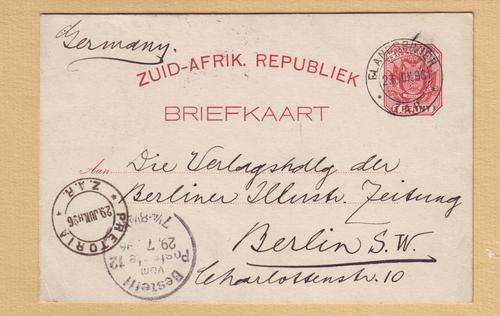 Germany.
ZUID-AFRIK. REPUBLIEK
BRIEFKAART
Aan Die Verlagshdlg der
Berliner Illustr. Zeitung
Berlin S.W.
Charlottenstr. 10
PRETORIA
Z.A.R.
Bestellt
vom
Postamte 12
29.7